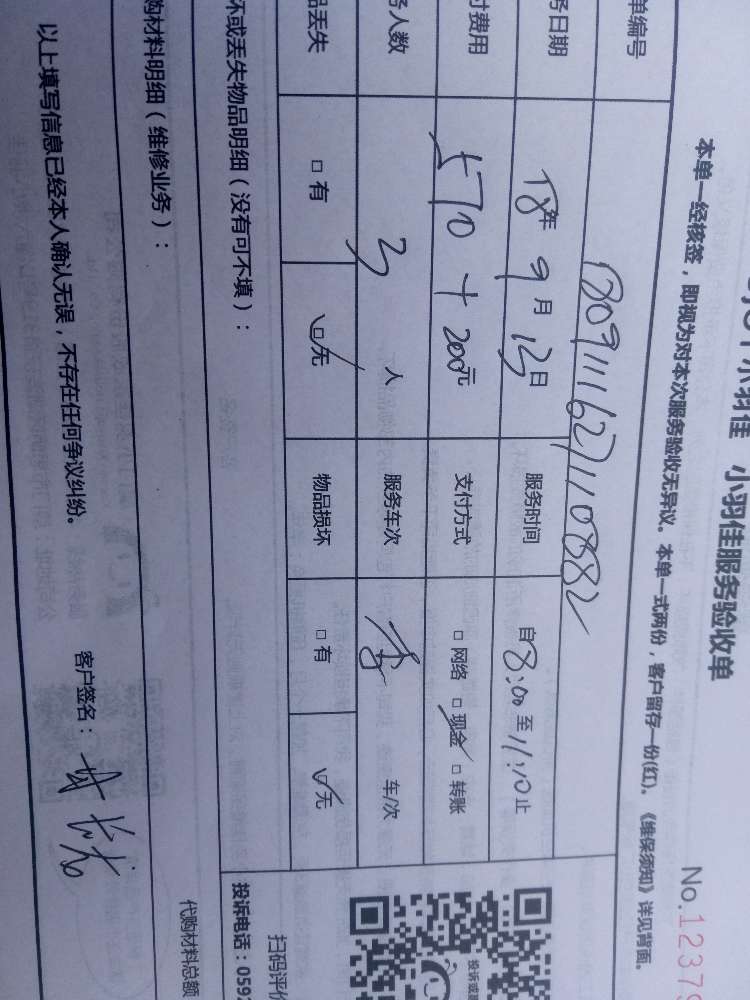 小羽佳 小羽佳服务验收单
No.12379
本单一经核签，即视为对本次服务验收无异议。本单一式两份，客户留存一份(红)。《维保须知》详见背面。
单编号 1809111627110882
务日期 18年 9月 13日 服务时间 自8:00至11:10止
付费用 570+200元 支付方式 □网络 □现金 □转账
务人数 3 人 服务车次 车/次
品丢失 □有 □无 物品损坏 □有 □无
坏或丢失物品明细（没有可不填）：
购材料明细（维修业务）：
代购材料总额
以上填写信息已经本人确认无误，不存在任何争议纠纷。
客户签名：
投诉电话：0592
扫码评价